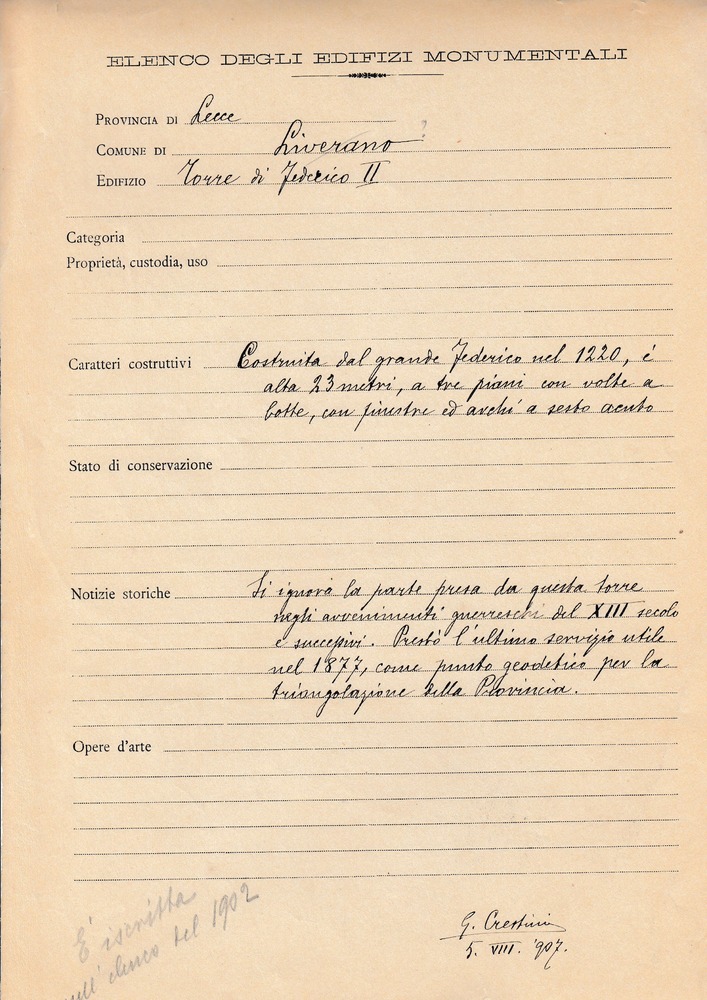 ELENCO DEGLI EDIFIZI MONUMENTALI
PROVINCIA DI Lecce
COMUNE DI Liverano ?
EDIFIZIO Torre di Federico II
Categoria
Proprietà, custodia, uso
Caratteri costruttivi Costruita dal grande Federico nel 1220, é
alta 23 metri, a tre piani con volte a
botte, con finestre ed archi a sesto acuto
Stato di conservazione
Notizie storiche Si ignora la parte presa da questa torre
negli avvenimenti guerreschi del XIII secolo
e successivi. Prestò l'ultimo servizio utile
nel 1877, come punto geodetico per la
triangolazione della Provincia.
Opere d'arte
È iscritta
nell'elenco del 1902
G.
5. VIII. '907.